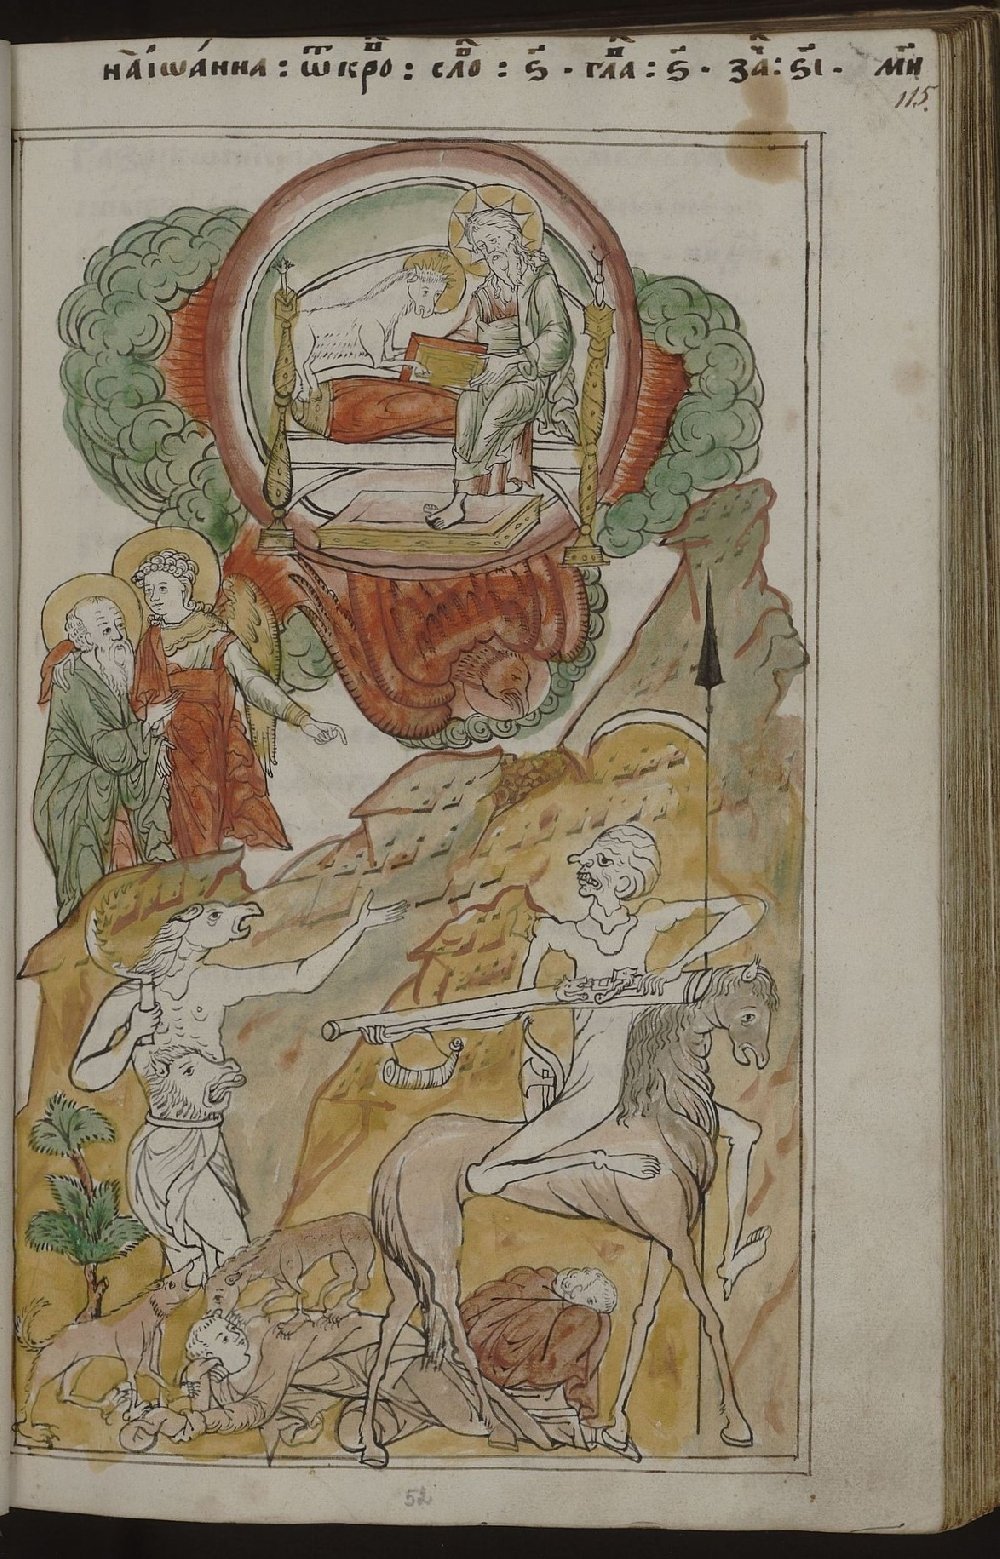 на іѡа́нна : ѿкро : сло́ : ѕ҃ · гла : ѕ҃ · за : ѕі ·
115.
52